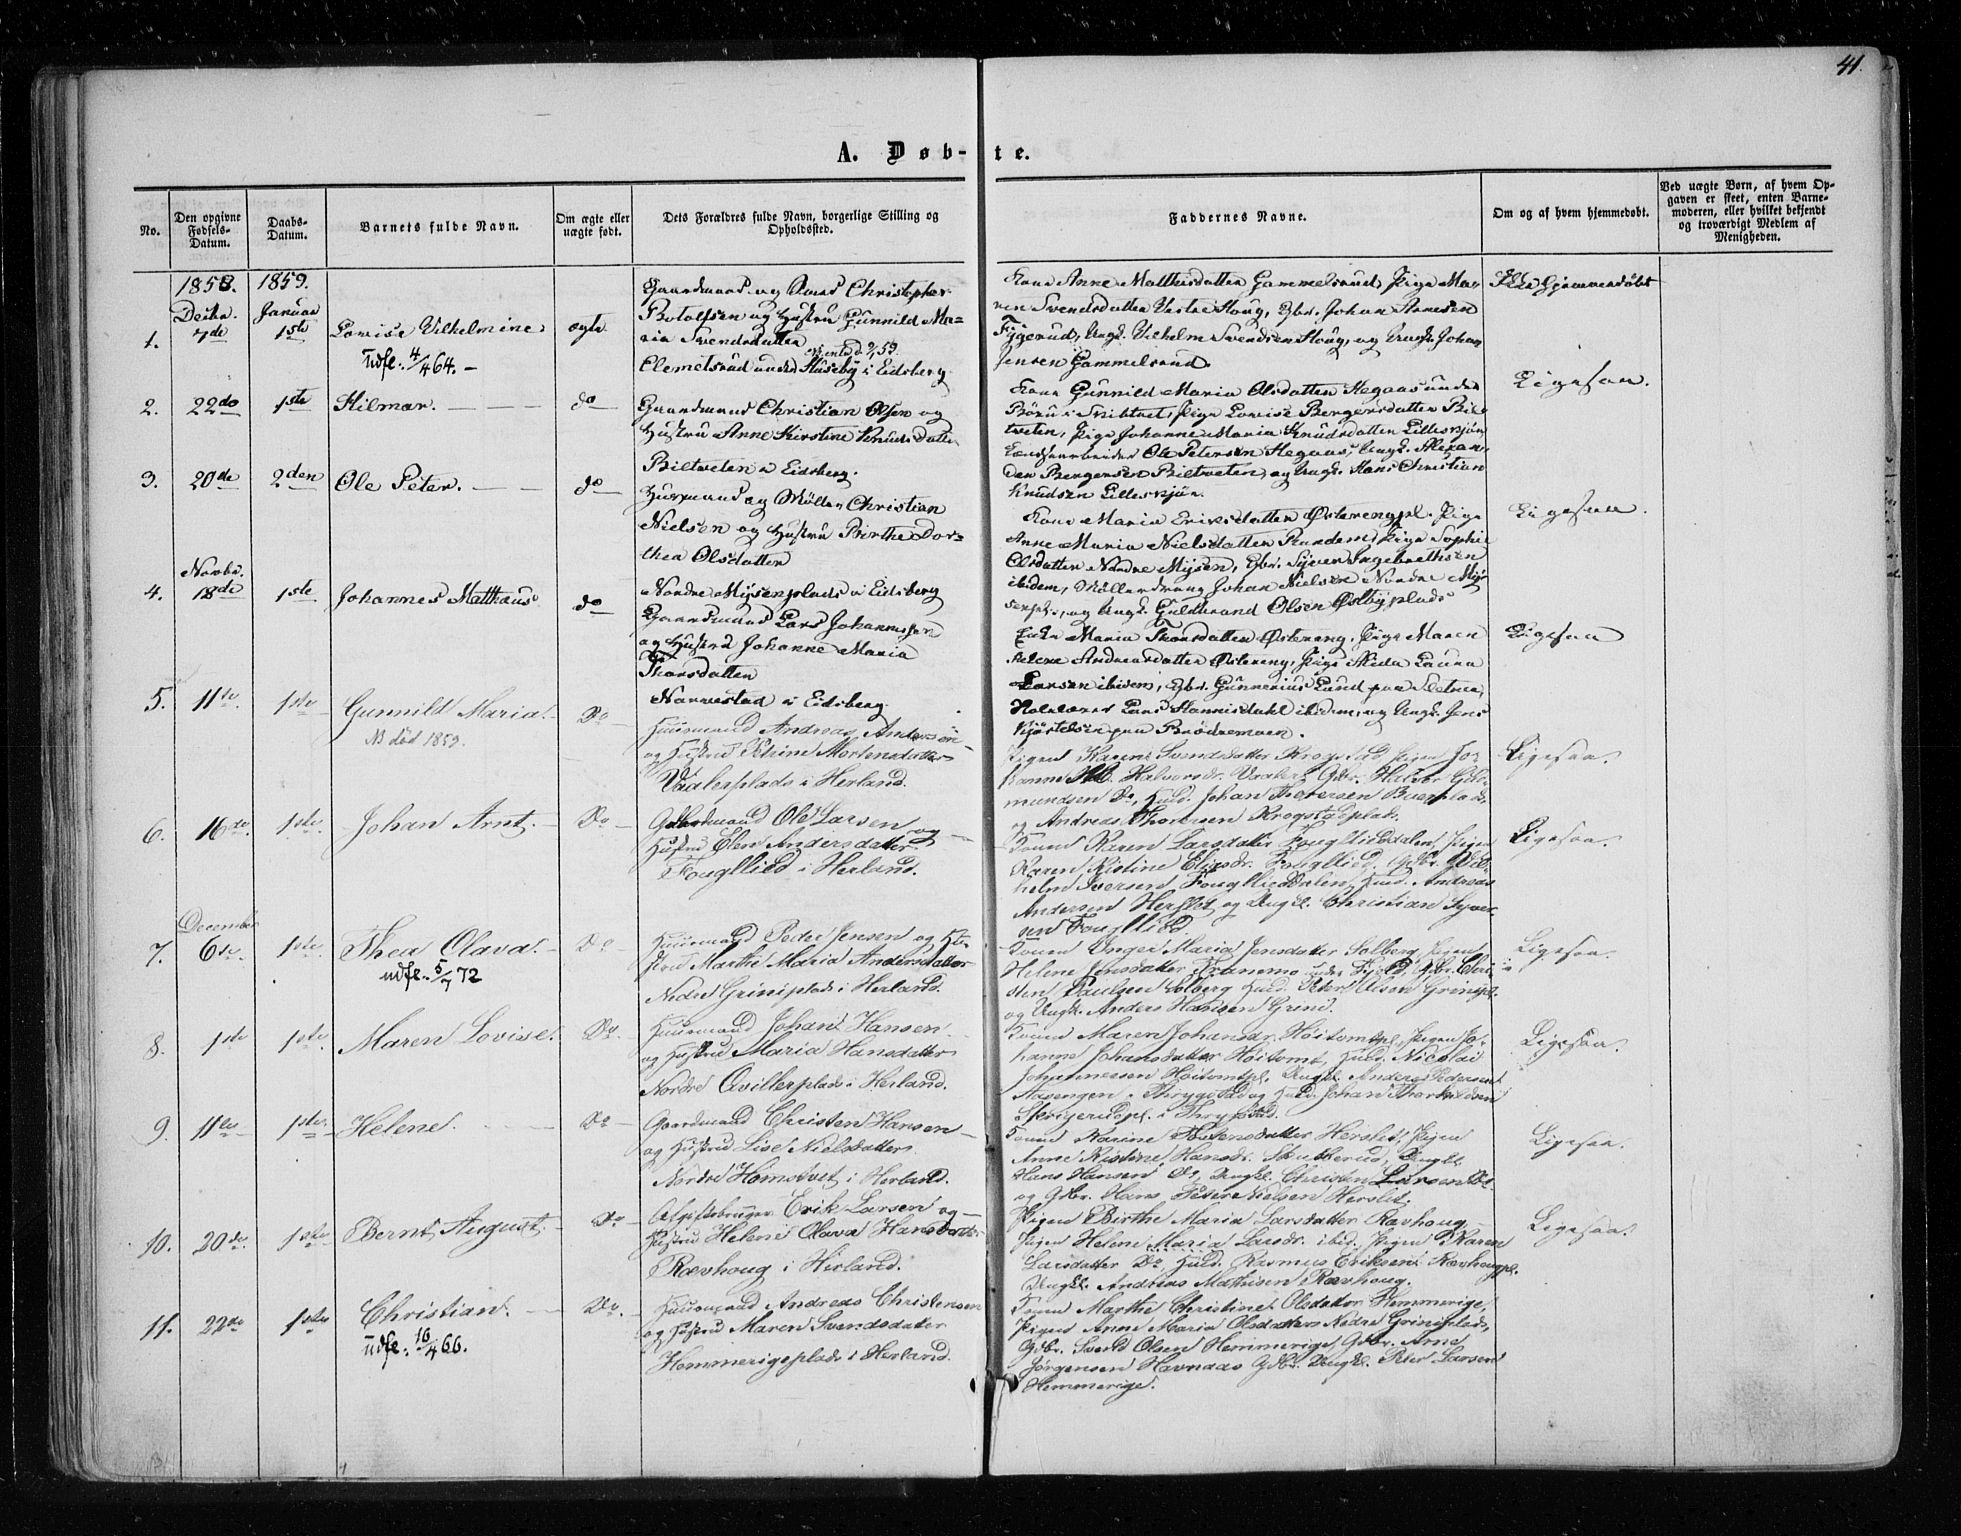 41.
A. Døb-te.
No.
Den opgivne Fødsels-Datum.
Daabs-Datum.
Barnets fulde Navn.
Om ægte eller uægte født.
Dets Forældres fulde Navn, borgerlige Stilling og Opholdssted.
Faddernes Navne.
Om og af hvem hjemmedøbt.
Ved uægte Børn, af hvem Opgaven er skeet, enten Barnemoderen, eller hvilket bekjendt og troværdigt Medlem af Menigheden.
1858. 1859.
Januar
1. 7de 1ste Lovise Vilhelmine ægte
udfl. 4/4 64. –
Christopher
Botolfsen og Hustru Gunnild Ma-
ria Svendsdatter
Clemetsrud under Huseby i Eidsberg
Kone Anne Matthisdatter Gammelsrud, Pige Ma-
ren Svendsdatter Vestre Houg, Gbr. Johan Arnesen
Svendsen Houg, og Ungk. Johan
Jensen Gammelsrud.
Ikke hjemmedøbt
2. 22de 1ste Hilmar. do
Gaardmand Christian Olsen og
Hustru Anne Kirstine Knudsdatter
Biltveten i Eidsberg.
Kone Gunnild Maria Olsdatter Hegaas under
Pige Lovise Bergersdatter Bil-
tveten, Pige Johanne Maria Knudsdatter Lilleskjøn
Ole Petersen Hegaas, Ungk. Alexan-
der Bergersen Biltveten, og Ungk. Hans Christian
Knudsen Lilleskjøn.
Ligesaa.
3. 20de 2den Ole Peter. do
Huusmand og Møller Christian
Nielsen og Hustru Birthe Dor-
thea Olsdatter
Nordre Mysenplads i Eidsberg
Kone Maria Eriksdatter Østerengpl. Pige
Anne Maria Nielsdatter Ramdem, Pige Sophie
Olsdatter Nordre Mysen, Gbr. Syver Ingebrethsen
ibidem, Møllerdreng Johan Nielsen Nordre My-
senpl., og Ungk. Guldbrand Olsen Østbyplads
Ligesaa.
Novbr.
4. 18de 1ste Johannes Matthæus do
Gaardmand Lars Johannessen
og Hustru Johanne Maria
Thorsdatter
Narvestad i Eidsberg
Enke Maria Thorsdatter Østereng, Pige Maren
Helene Andreasdatter Østereng, Pige Laura
Larsen ibidem, Gbr. Gunnerius Lund paa
Lars ibidem og Ungk. Jens
paa Brødremoen.
Ligesaa
5. 11te. 1ste Gunnild Maria. Do
NB død 1859.
Huusmand Andreas Anderssen
og Hustru Mortensdatter
Vaalerplads i Herland.
Pigen Karen Svendsdatter Krogstad Pigen Jo-
hanne Halvorsdr. Vaaler, Gbr. Halvor Gud-
mundsen Do, Huusmd. Johan Thoresen
og Andreas Thoresen Krogstadplads.
Ligesaa.
6. 16de 1ste. Johan Arnt. Do
Gaardmand Ole Larsen og
Hustru Elen Andersdatter
Fougllied i Herland.
Konen Karen Larsdatter Fouglliedddalen, Pigen
Karen Kristine Eliasdr. Fougllied. Gbr. Vil-
helm Iversen Fouglliedddalen, Andreas
Andersen Herslet og Ungk. Christian Syver-
sen Fougllied.
Ligesaa.
December
7. 6te. 1ste. Thea Olava. Do
udfl. 5/7 72
Huusmand Peder Jensen og Hu-
stru Marthe Maria Andersdatter
Nedre Griniplads i Herland.
Konen Inger Maria Jensdatter Solberg Pigen
Helene Jensdatter Tranemo under Fjeld, Gbr. Chri-
sten Paulsen Solberg Peder Olsen Grinipl.
og Ungk. Anders Hansen Grini.
Ligesaa.
8. 1ste 1ste. Maren Lovise. Do.
Huusmand Johan Hansen
og Hustru Maria Hansdatter
Nordre Qvillerplads i Herland.
Konen Maren Johansdr. Høitomtpl. Pigen Jo-
hanne Johansdatter Høitomt, Nicolai
Johannessen Høitomtpl. Ungk. Anders Pedersen
Aasengen i Thrygstad og Johan Thorkildsen
i Thrygstad.
Ligesaa.
9. 11te 1ste. Helene. Do
Gaardmand Christen Hansen
og Hustru Lise Nielsdatter.
Nordre Homstvet i Herland.
Konen Karine Herslet, Pigen
Anne Kristine Hansdr. Skukkerud, Ungk.
Hans Hansen Do, Ungk. Christen Larsen Do.
og Gbr. Hans Peter Nielsen Herslet.
Ligesaa.
10. 20de. 1ste Bernt August. Do
Afgiftsbruger Erik Larsen og
Hustru Helene Olava Hansdatter
Rævhoug i Herland.
Pigen Birthe Maria Larsdatter Rævhoug
Pigen Helene Maria Larsdr. ibid. Pigen Karen
Larsdatter Do, Rasmus Eriksen Rævhougpl.
Ungk. Andreas Mathisen Rævhoug.
Ligesaa.
11. 22de 1ste Christian. Do.
udfl. 16/4 66.
Huusmand Andreas Christensen
og Hustru Maren Svendsdatter
Hemmerigsplads i Herland.
Konen Marthe Christine Olsdatter Hemmerige,
Pigen Anne Maria Olsdatter Nedre Griniplads,
Gbr. Svend Olsen Hemmerige, Gbr. Arne
Jørgensen Havnaas Gbr. Ungk. Peter Larsen
Hemmerige.